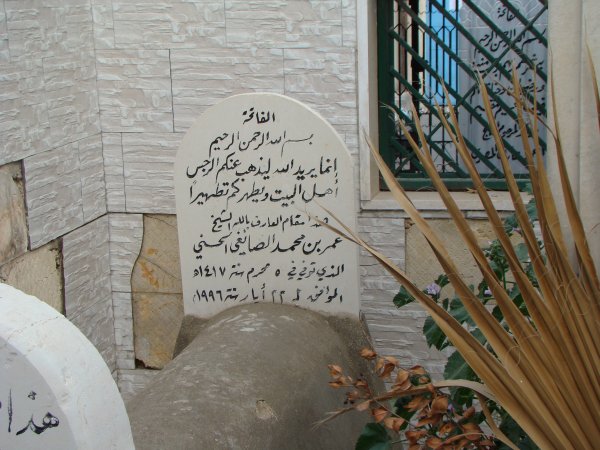 الفاتحة
بسم الله الرحمن الرحيم
انما يريد الله ليذهب عنكم الرجس
أهل البيت ويطهركم تطهيرا
هذا مقام العارف بالله الشيخ
عمر بن محمد الصايغي الحسني
الذي توفي في ٥ محرم سنة ١٤١٧ه
الموافق ل ٢٢ أيار سنة ١٩٩٦م
هذا
الفاتحة